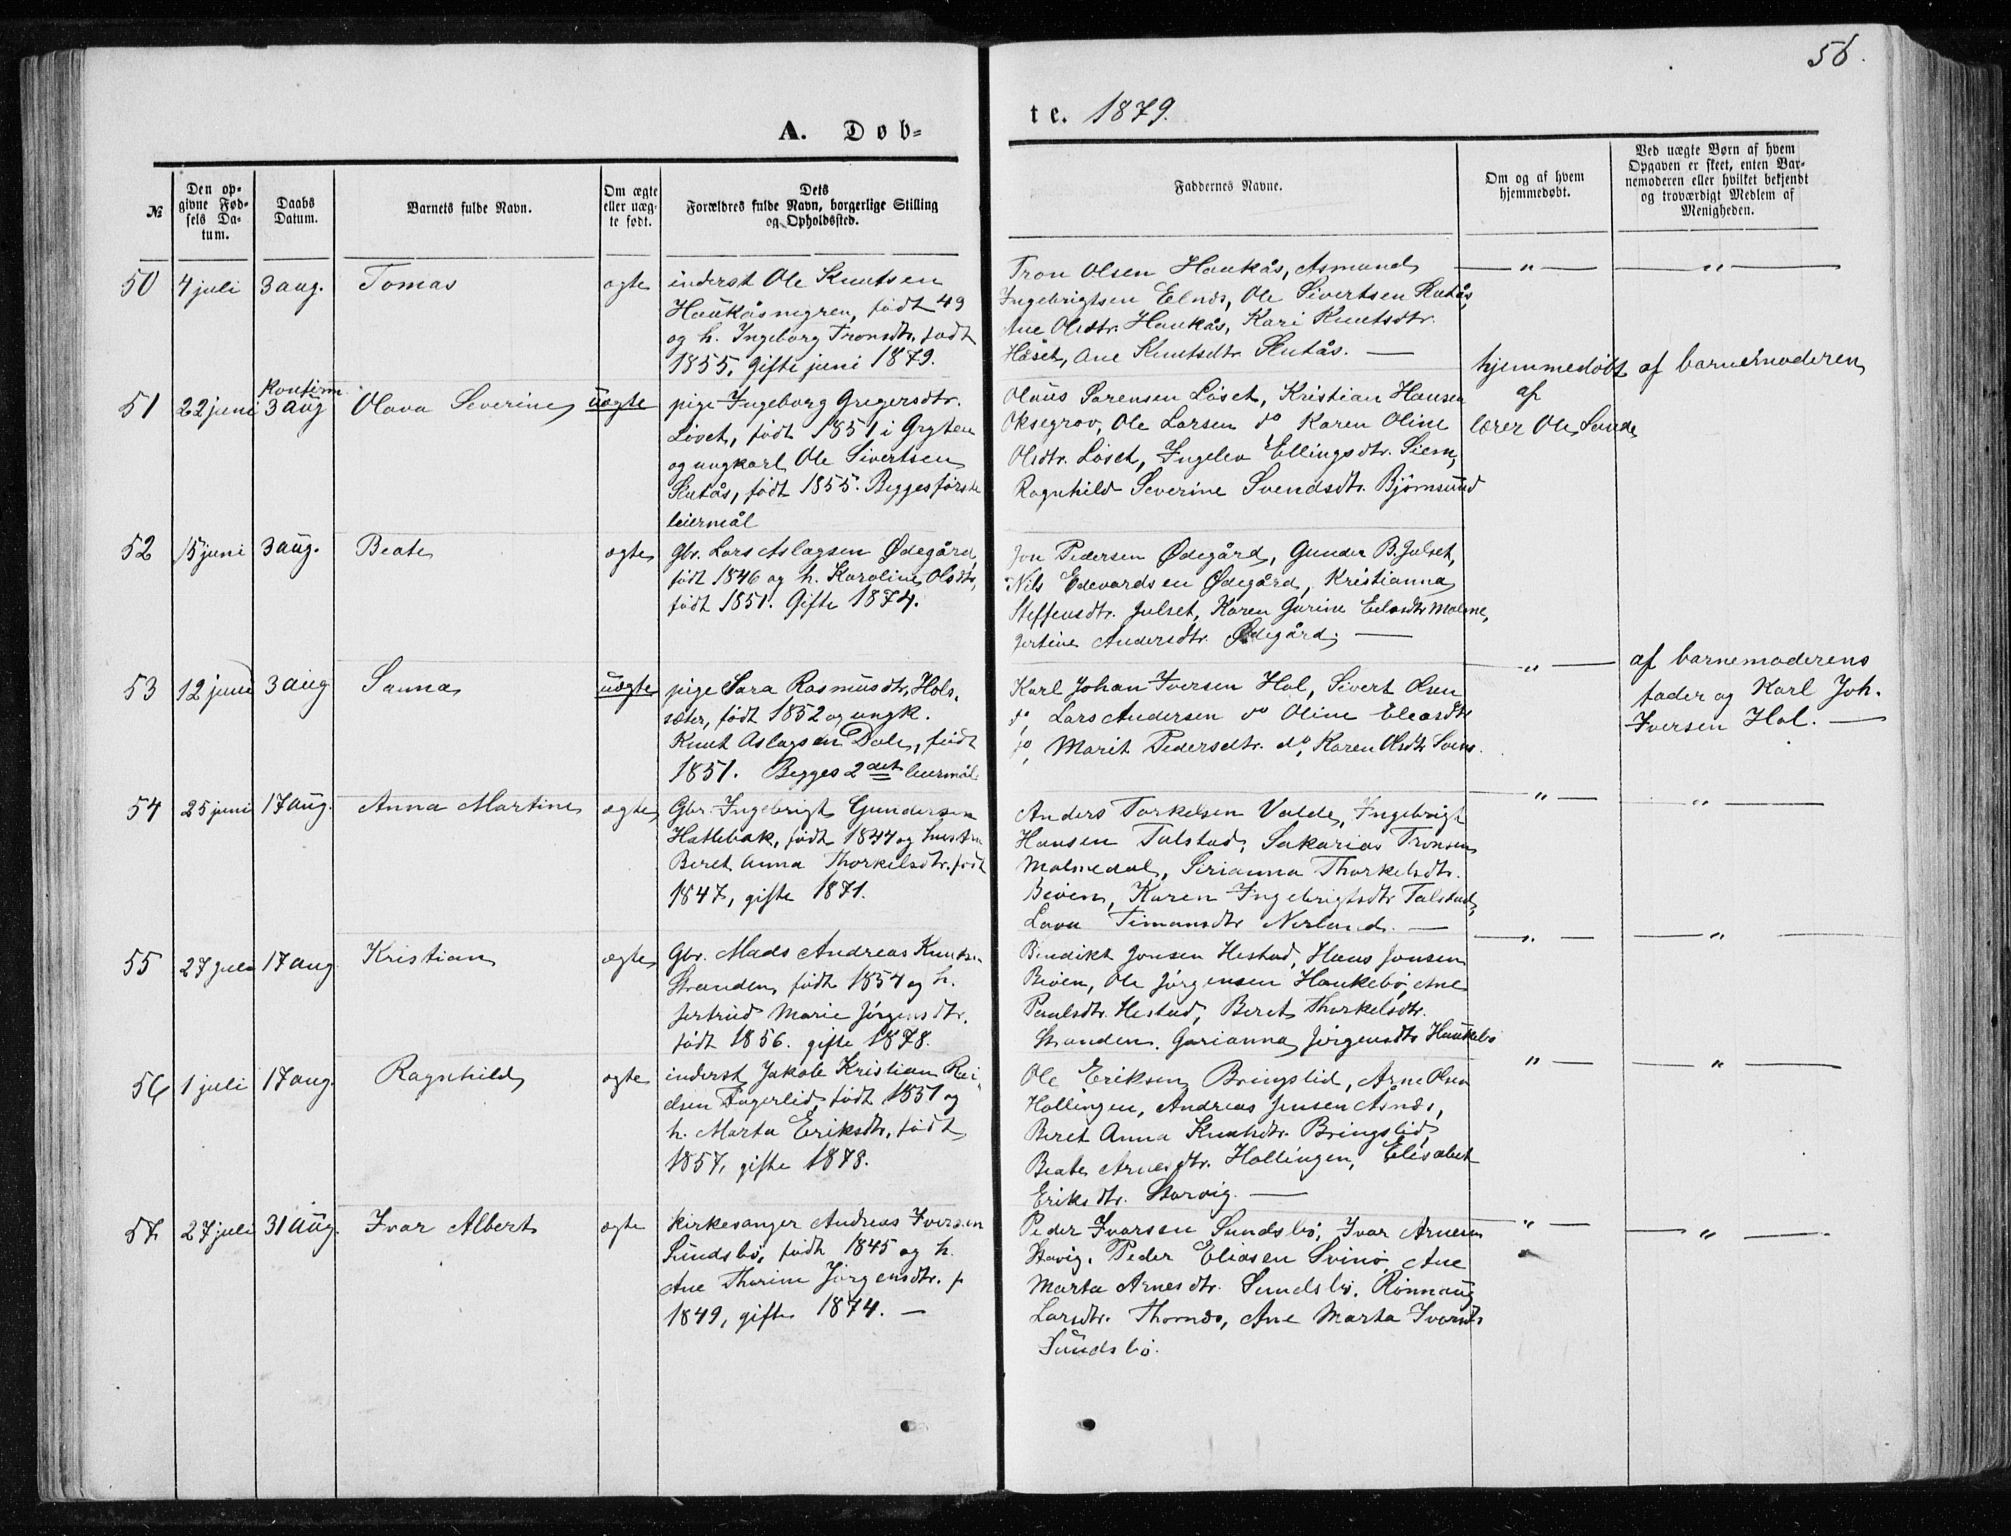 56.
A. Døb-
te. 1879.
№
Den op-
givne Fød-
sels Da-
tum.
Daabs
Datum.
Barnets fulde Navn.
Om ægte
eller uæg-
te født.
Dets
Forældres fulde Navn, borgerlige Stilling
og Opholdssted.
Faddernes Navne.
Om og af hvem
hjemmedøbt.
Ved uægte Børn af hvem
Opgaven er skeet, enten Bar-
nemoderen eller hvilket bekjendt
og troværdigt Medlem af
Menigheden.
50 4 juli 3 aug. Tomas ægte
inderst Ole Knutsen
Haukåsmyren, født 49
og h. Ingeborg Tronsdtr. født
1855. Gifte juni 1879.
Tron Olsen Haukås, Asmund
Ingebrigtsen Elnes, Ole Sivertsen Skutås,
Ane Olsdtr. Haukås, Kari Knutsdtr.
Höset, Ane Knutsdtr. Skutås. —
— " —
— " —
51 22 juni Konfirm. 3 aug Olava Severine uægte
pige Ingeborg Gregersdtr.
Løset, født 1851 i Grytten
og ungkarl Ole Sivertsen
Skutås, født 1855. Begges første
leiermål
Olaus Sørensen Løset, Kristian Hansen
Oksegrov, Ole Larsen do Karen Oline
Olsdtr. Løset, Ingelev Ellingsdtr. Siem,
Ragnhild Severine Svendsdtr. Bjørnsund
hjemmedøbt
af
lærer Ole Sunde
af barnemoderen
52 15 juni 3 aug. Beate ægte
Gbr. Lars Aslagsen Ødegård,
født 1846 og h. Karoline Olsdtr.,
født 1851. Gifte 1874.
Jon Pedersen Ødegård, Gunder B. Julset,
Nils Edevardsen Ødegård, Kristianna
Steffensdtr. Julset, Karen Gurine Eliasdtr Malme,
Jertine Andersdtr. Ødegård. —
53 12 juni 3 aug Sanna uægte
pige Sara Rasmusdtr, Hols-
sæter, født 1852 og ungk.
Knut Aslagsen Dale, født
1851. Begges 2det leiermål
Karl Johan Iversen Hol, Sivert Olsen
do, Lars Andersen do Oline Eliasdtr
do, Marit Pedersdtr. do, Karen Olsdtr
" —
af barnemoderens
fader og Karl Joh.
Iversen Hol. —
54 25 juni 17 aug. Anna Martine ægte
Gbr. Ingebrigt Gundersen
Hatlebak, født 1844 og hustru
Beret Anna Thorkelsdtr. født
1847, gifte 1871.
Anders Torkelsen Valde, Ingebrigt
Hansen Talstad, Sakarias Tronsen
Malmedal, Serianna Thorkelsdtr.
Beien, Karen Ingebrigtsdtr Talstad,
Lava Timansdtr Nerland. —
— " —
— " —
55 27 juli 17 aug. Kristian ægte
Gbr. Mads Andreas Knutsen
Stranden, født 1854 og h.
Jertrud Marie Jørgensdtr.
født 1856. gifte 1878.
Bendikt Jonsen Hestad, Hans Jonsen
Beien, Ole Jørgensen Haukebø, Ane
Paulsdtr. Hestad, Beret Thorkelsdtr.
Stranden. Gurianna Jørgensdtr Haukebø
— " —
— " —
56 1 juli 17 aug. Ragnhild ægte
inderst Jakob Kristian Rei-
dsen Fagerlid, født 1851 og
h. Marta Eriksdtr, født
1857, gifte 1878.
Ole Eriksen Bringslid, Arne Olsen
Hollingen, Andreas Jensen Åsnes,
Beret Anna Knutsdtr. Bringslid,
Beate Arnesdtr. Hollingen, Elisabet
Eriksdtr. Storvig. —
" —
— " —
57 27 juli 31 aug. Ivar Albert ægte
Kirkesanger Andreas Iversen
Sundsbø, født 1845 og h.
Ane Thorine Jørgensdtr. f
1849, gifte 1874. —
Peder Ivarsen Sundsbø, Ivar Arnesen
Stavig. Peder Eliasen Svinø, Ane
Marta Arnesdtr. Sundsbø. Rønnaug
Larsdtr. Thornes, Ane Marta Ivarsdtr
Sundsbø.
" —
— " —